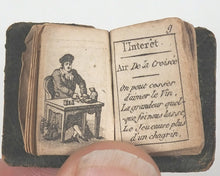 9
l'Interêt.
Air De la Croisée
On peut cesser
d'aimer le Vin,
La grandeur quel-
que fois nous lasse,
Le Jeu cause plus
d'un chagrin,